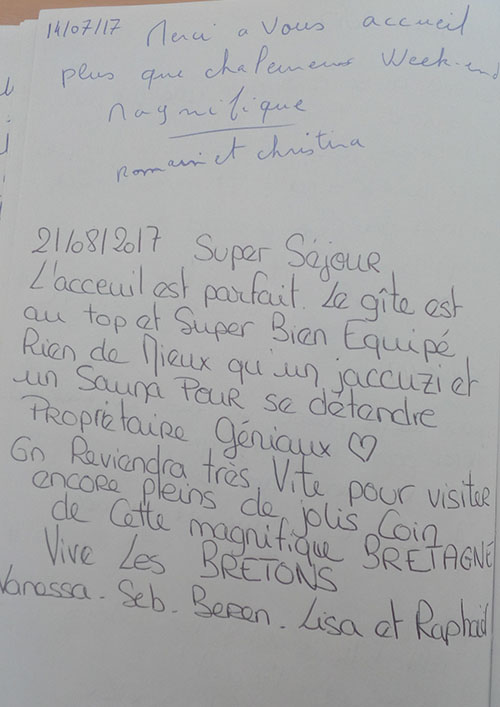 14/07/17 Merci a Vous accueil
plus que chaleureux Week-end
Magnifique
romain et christina
21/08/2017 Super Séjour
L'acceuil est parfait. Le gîte est
au top et Super Bien Equipé
Rien de Mieux qu'un jaccuzi et
un Sauna Pour se détendre
Propriétaire Géniaux ♡
On Reviendra très Vite pour visiter
encore pleins de jolis Coin
de Cette magnifique BRETAGNE
Vive Les BRETONS
Vanessa. Seb. Beren. Lisa et Raphaël